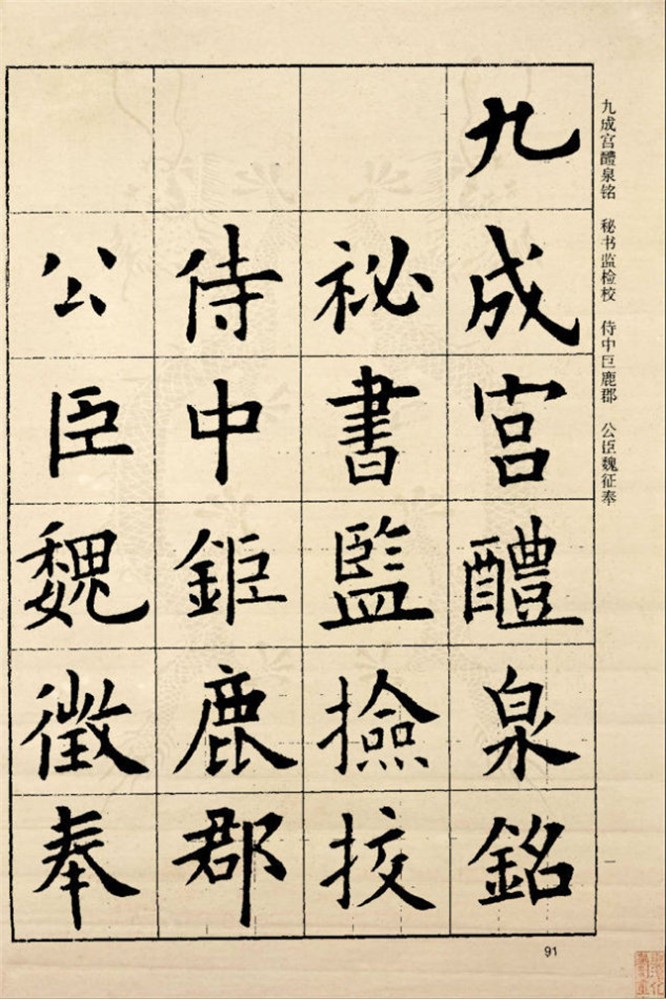 九成宫醴泉铭 秘书监检校 侍中巨鹿郡 公臣魏征奉
九成宮醴泉銘
祕書監撿挍
侍中鉅鹿郡
公臣魏徵奉
91